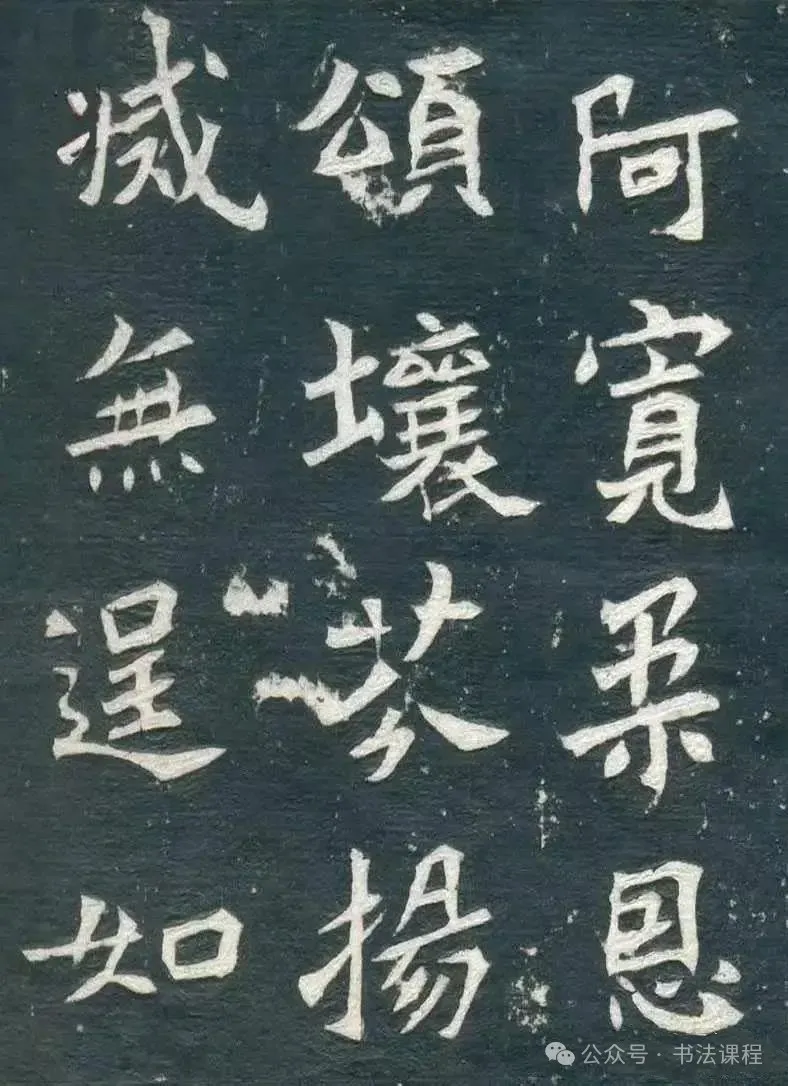 阿寬柔恩
頌壤芬揚
滅無逞如
公众号·书法课程